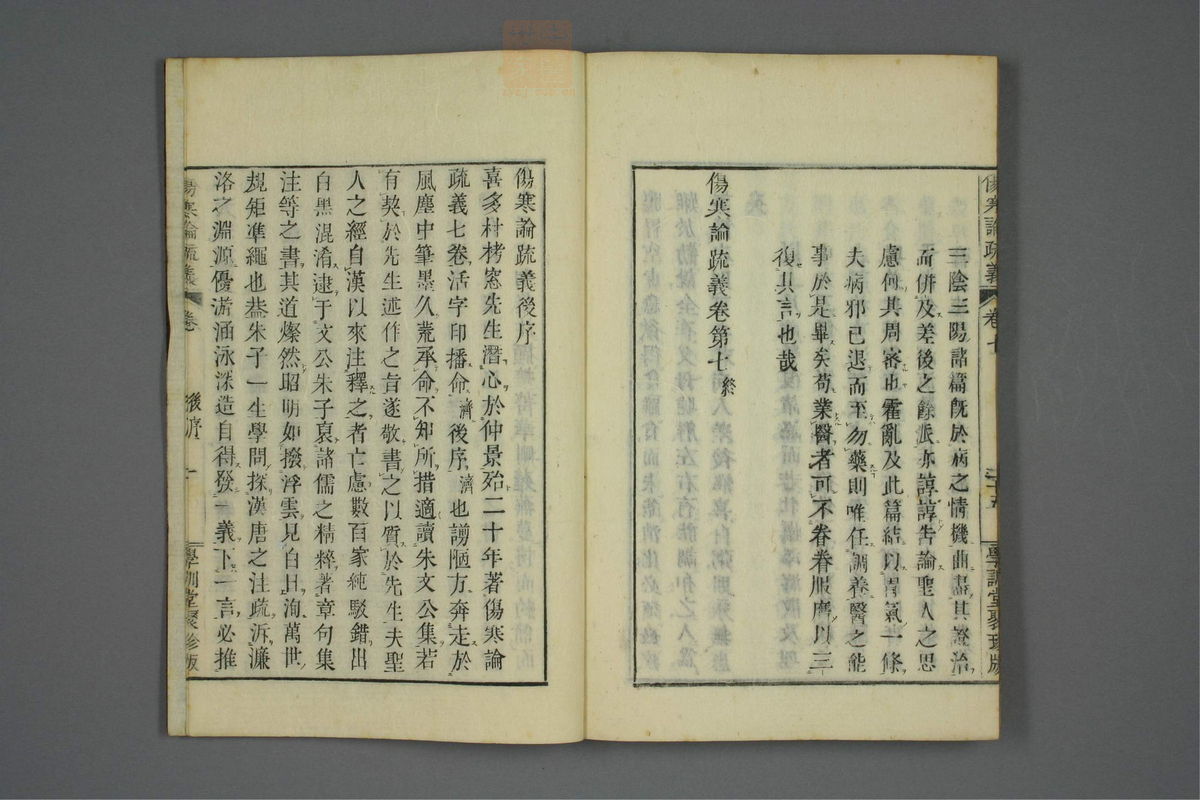 傷寒論疏義 卷七 二十五 學訓堂聚珍版
三陰三陽諸篇既於病之情機曲盡其證治
而併及差後之餘派亦諄諄告諭聖人之思
慮何其周審也霍亂及此篇結以胃氣一條
夫病邪已退而至勿藥則唯任調養醫之能
事於是畢矣苟業醫者可不眷眷服膺以三
復其言也哉
傷寒論疏義卷第七終
傷寒論疏義後序
喜多村栲窓先生潛心於仲景殆二十年著傷寒論
疏義七卷活字印播命濟後序濟也謭陋方奔走於
風塵中筆墨久荒承命不知所措適讀朱文公集若
有契於先生述作之旨遂敬書之以質於先生夫聖
人之經自漢以來注釋之者亡慮數百家純駁錯出
白黑混淆逮于文公朱子裒諸儒之精粹著章句集
注等之書其道燦然昭明如撥浮雲見白日洵萬世
規矩準繩也葢朱子一生學問探漢唐之注疏泝濂
洛之淵源優游涵泳深造自得發一義下一言必推
傷寒論疏義 卷 後序 一 學訓堂聚珍版